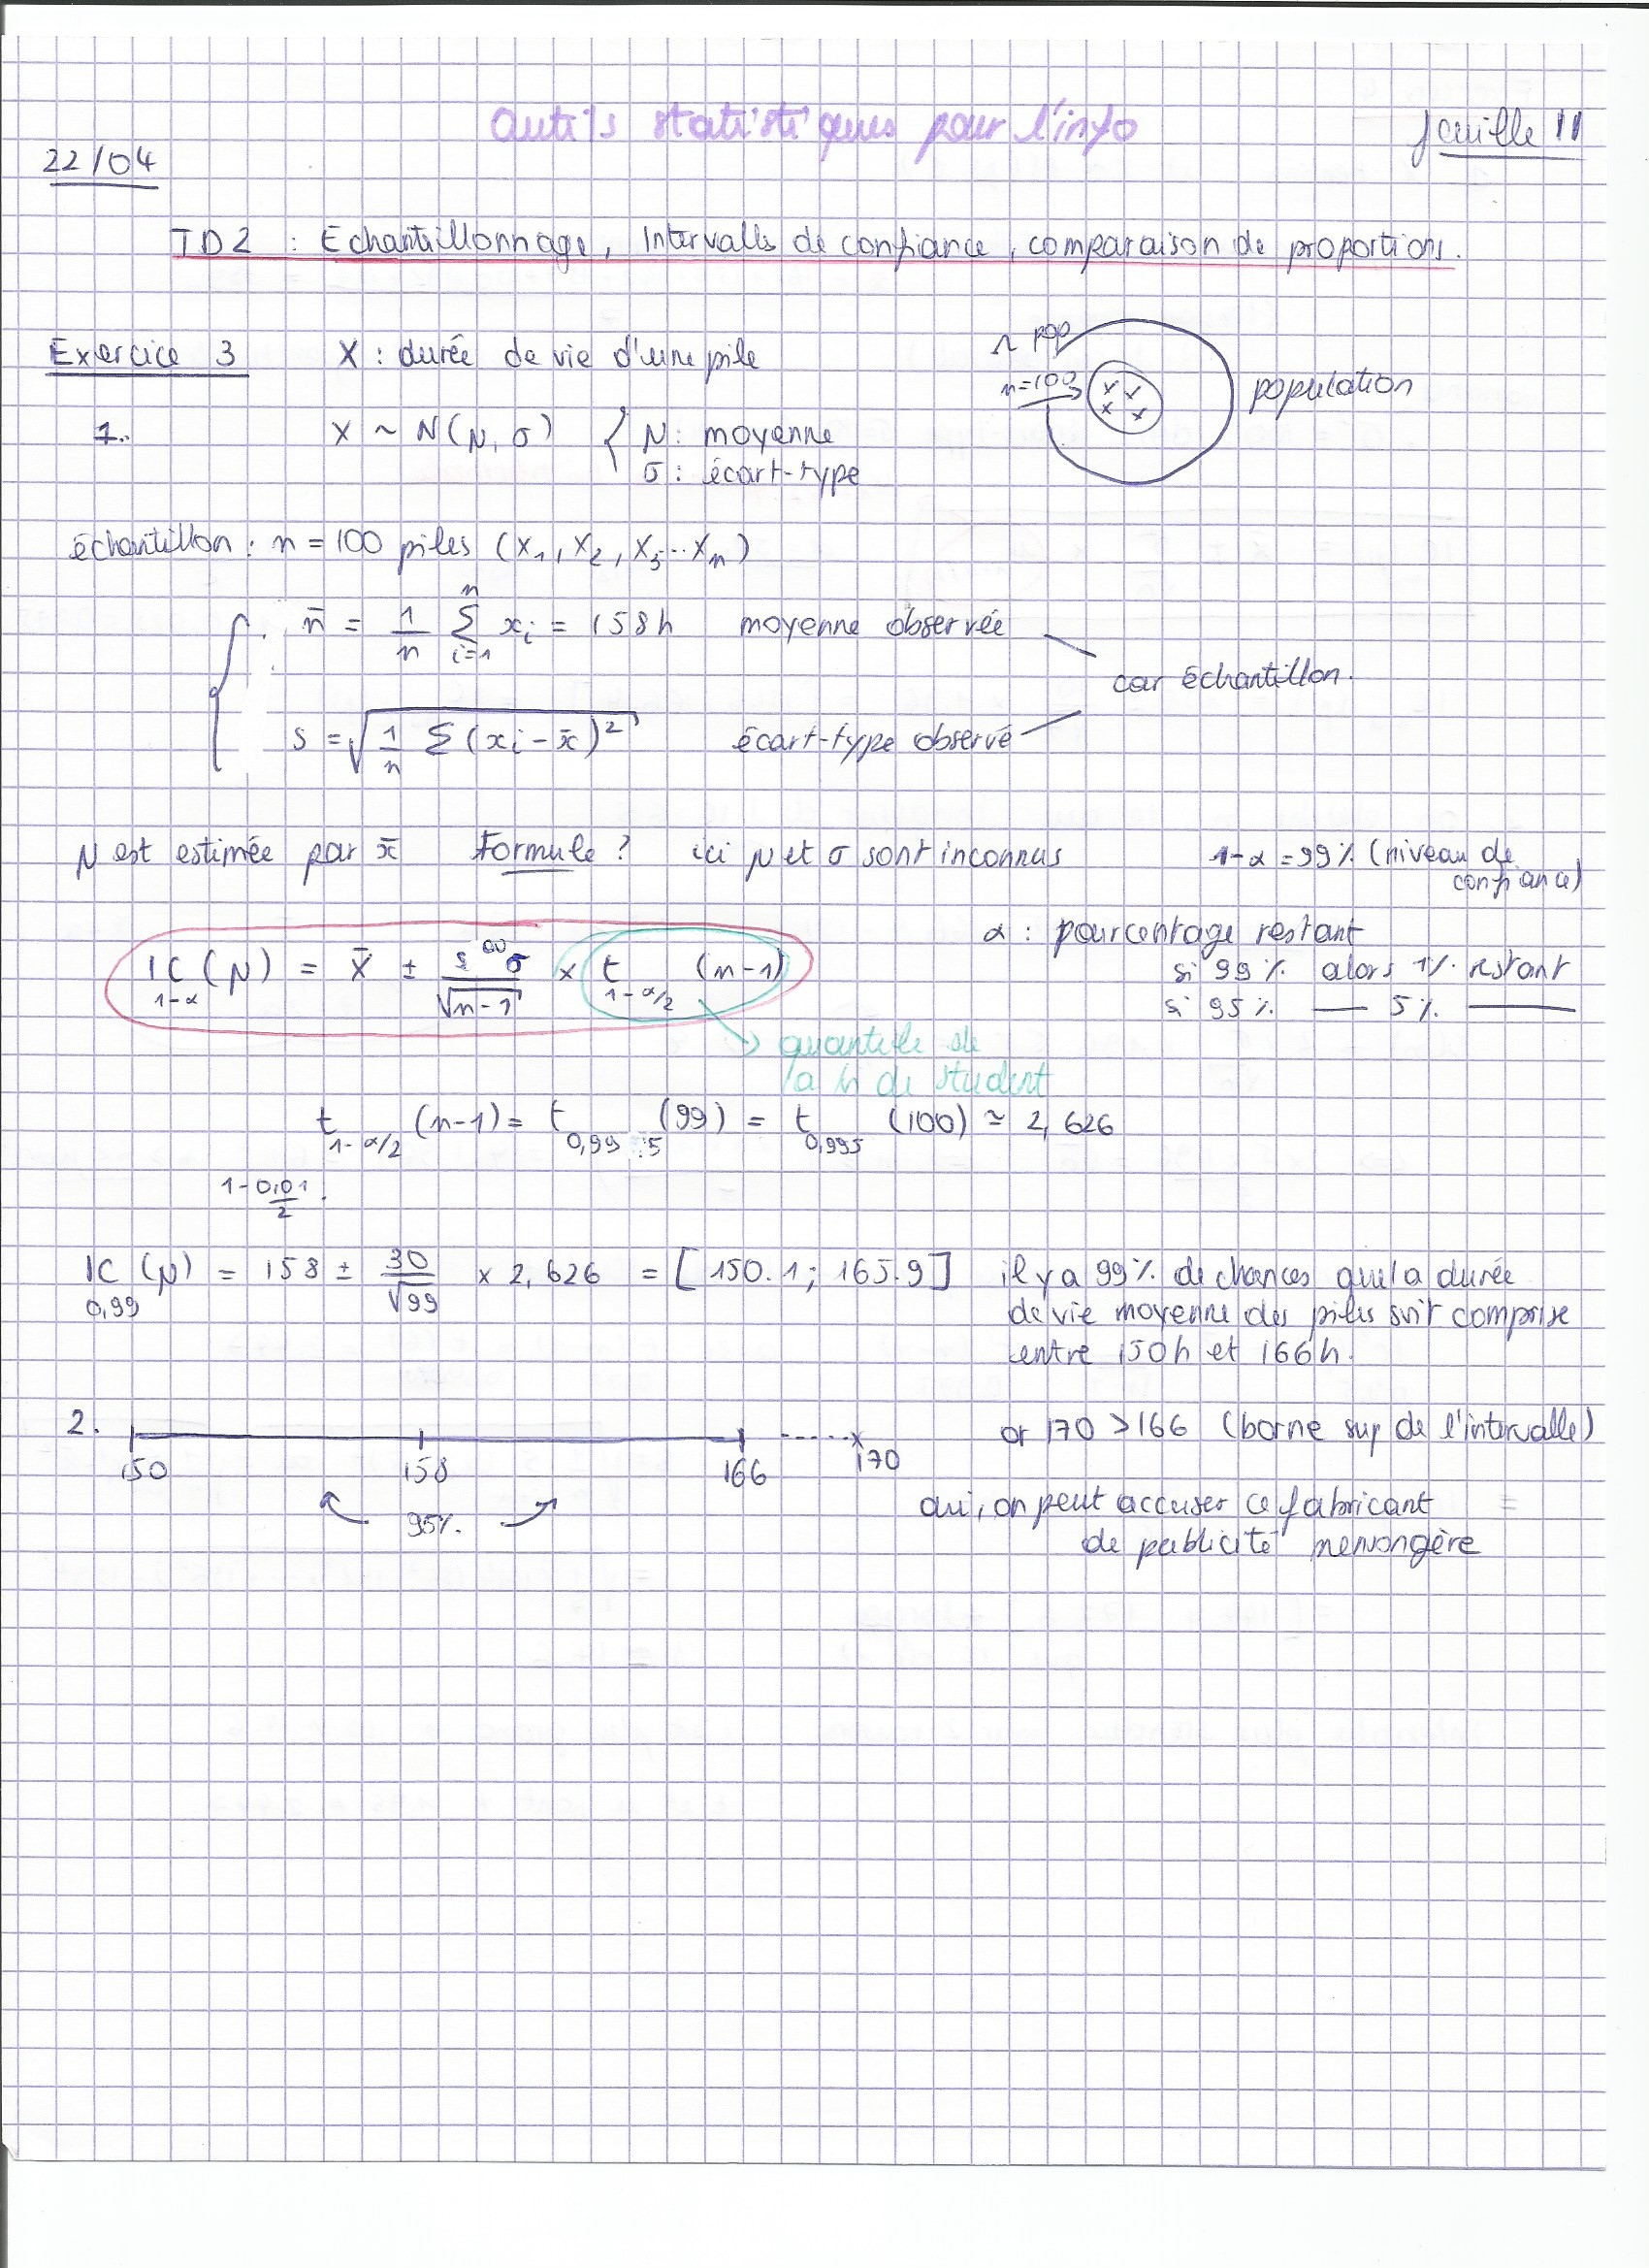 Outils statistiques pour l'info
feuille 11
22/04
TD2 : Echantillonnage, Intervalls de confiance, comparaison de proportions.
Exercice 3 X : durée de vie d'une pile
pop
n=100
population
1. X ~ N(μ, σ) { μ : moyenne
σ : écart-type
échantillon : n = 100 piles (X₁, X₂, X₃...Xₙ)
x̄ = 1/n Σ_{i=1}^{n} xᵢ = 158h moyenne observée
car échantillon.
s = √(1/n Σ(xᵢ - x̄)²) écart-type observé
μ est estimée par x̄ Formule ? ici μ et σ sont inconnus
1-α = 99% (niveau de
confiance)
α : pourcentage restant
si 99% alors 1% restant
si 95% — 5% —
IC_{1-α}(μ) = x̄ ± s ou σ/√(n-1) × t_{1-α/2} (n-1)
→ quantile de
la loi de student
t_{1-α/2} (n-1) = t_{0,995} (99) = t_{0,995} (100) ≃ 2,626
1-0,01/2
IC_{0,99}(μ) = 158 ± 30/√99 × 2,626 = [150.1 ; 165.9] il y a 99% de chances que la durée
de vie moyenne des piles soit comprise
entre 150h et 166h.
2. 150 158 166 170
95%.
or 170 > 166 (borne sup de l'intervalle)
oui, on peut accuser ce fabricant
de publicité mensongère